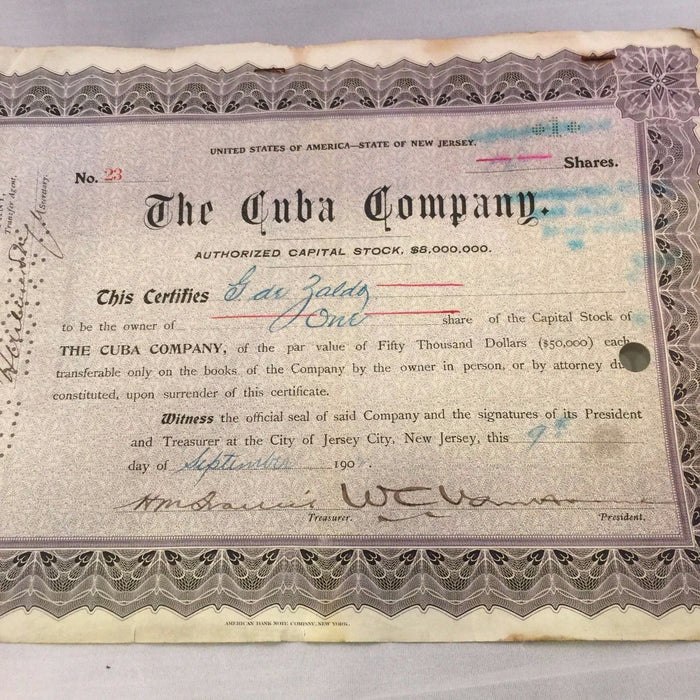 UNITED STATES OF AMERICA—STATE OF NEW JERSEY.
No. 23
Shares.
The Cuba Company.
AUTHORIZED CAPITAL STOCK, $8,000,000.
This Certifies G de Zaldo
to be the owner of One share of the Capital Stock of
THE CUBA COMPANY, of the par value of Fifty Thousand Dollars ($50,000) each
transferable only on the books of the Company by the owner in person, or by attorney
constituted, upon surrender of this certificate.
Witness the official seal of said Company and the signatures of its President
and Treasurer at the City of Jersey City, New Jersey, this 9th
day of September 190
W C Van Horne
Treasurer.
President.
AMERICAN BANK NOTE COMPANY, NEW YORK.
Transfer Agent.
Secretary.